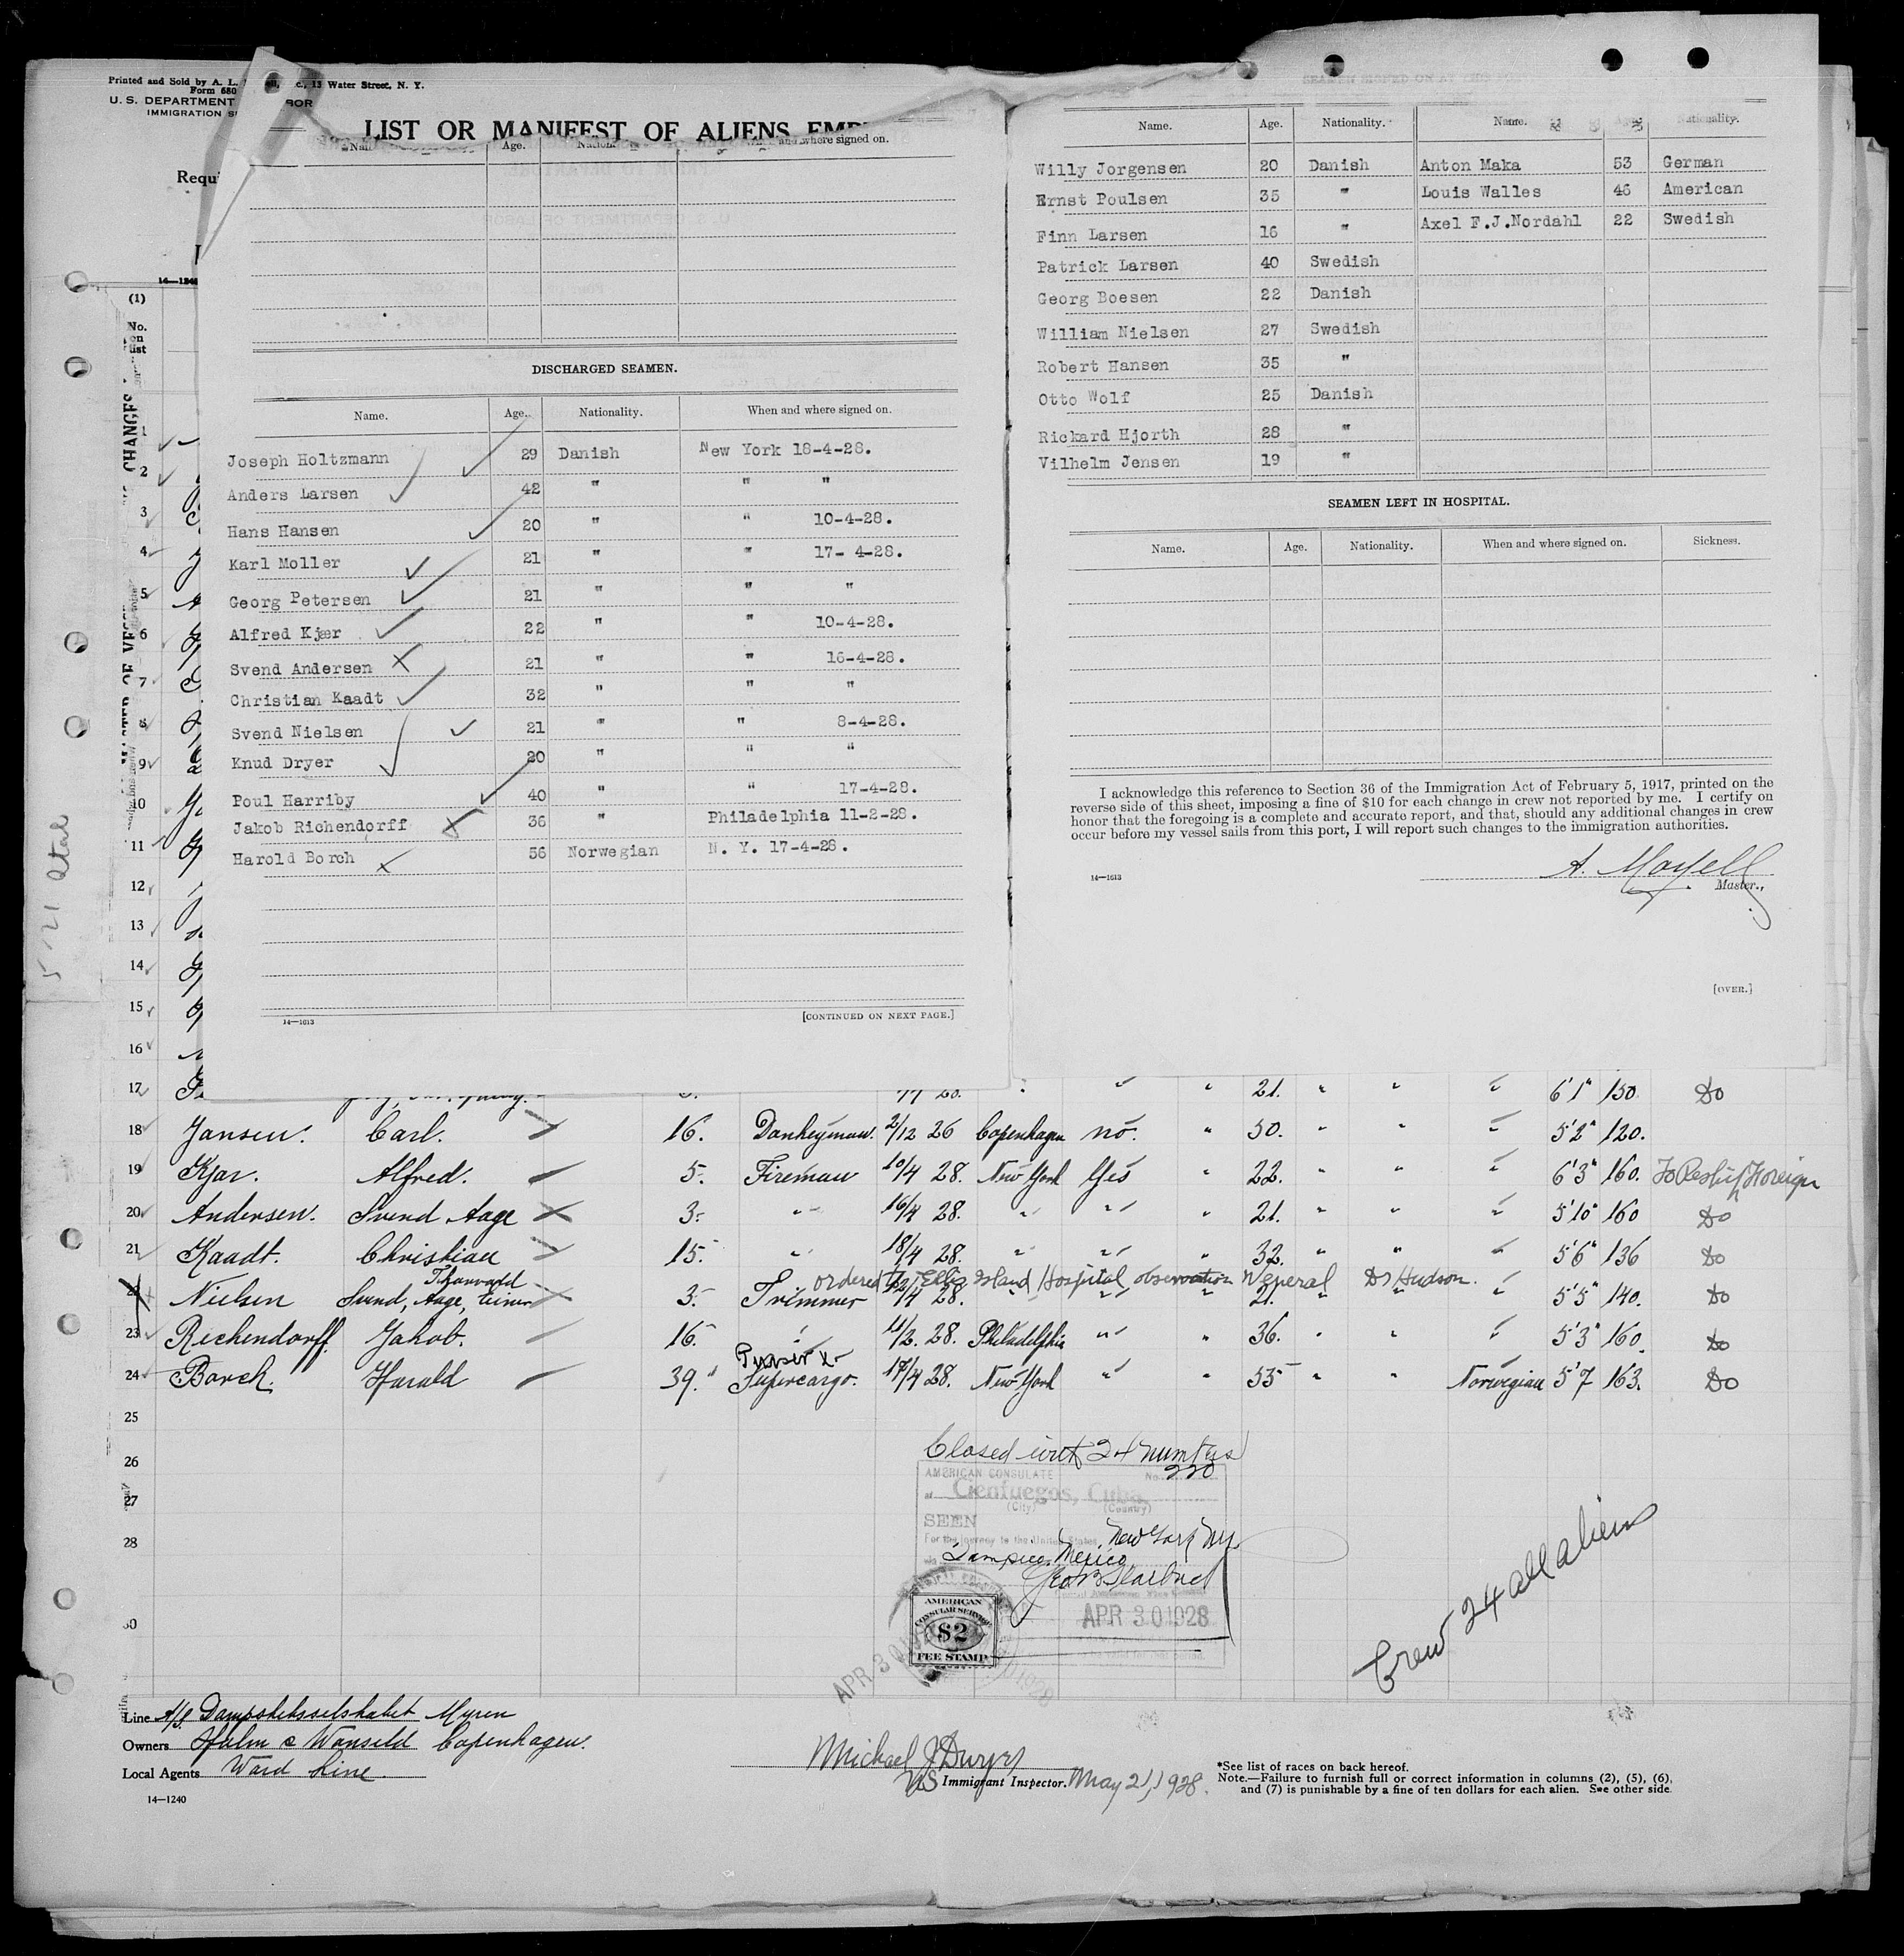 Printed and Sold by A. L. 13 Water Street, N. Y.
Form 680
U. S. DEPARTMENT
IMMIGRATION
LIST OR MANIFEST OF ALIENS
Age. and where signed on.
DISCHARGED SEAMEN.
Name. Age. Nationality. When and where signed on.
Joseph Holtzmann 29 Danish New York 18-4-28.
Anders Larsen 42 " " "
Hans Hansen 20 " " 10-4-28.
Karl Moller 21 " " 17- 4-28.
Georg Petersen 21 " " "
Alfred Kjær 22 " " 10-4-28.
Svend Andersen 21 " " 16-4-28.
Christian Kaadt 32 " " "
Svend Nielsen 21 " " 8-4-28.
Knud Dryer 20 " " "
Poul Harriby 40 " " 17-4-28.
Jakob Richendorff 36 " Philadelphia 11-2-28.
Harold Borch 56 Norwegian N. Y. 17-4-28.
14—1613 [CONTINUED ON NEXT PAGE.]
Name. Age. Nationality. Name. Nationality.
Willy Jorgensen 20 Danish Anton Maka 53 German
Ernst Poulsen 35 " Louis Walles 46 American
Finn Larsen 16 " Axel F.J.Nordahl 22 Swedish
Patrick Larsen 40 Swedish
Georg Boesen 22 Danish
William Nielsen 27 Swedish
Robert Hansen 35 "
Otto Wolf 25 Danish
Rickard Hjorth 28 "
Vilhelm Jensen 19 "
SEAMEN LEFT IN HOSPITAL.
Name. Age. Nationality. When and where signed on. Sickness.
I acknowledge this reference to Section 36 of the Immigration Act of February 5, 1917, printed on the
reverse side of this sheet, imposing a fine of $10 for each change in crew not reported by me. I certify on
honor that the foregoing is a complete and accurate report, and that, should any additional changes in crew
occur before my vessel sails from this port, I will report such changes to the immigration authorities.
14—1613 Master.,
[OVER.]
(1)
No.
on
list
1
2
3
4
5
6
7
8
9
10
11
12
13
14
15
16
17 21. " " " 6'1" 150. Do
18 Jansen. Carl. 16. Donkeyman. 2/12 26 Copenhagen no. " 50. " " " 5'2" 120.
19 Kjar. Alfred. 5. Fireman 10/4 28. New York Yes " 22. " " " 6'3" 160. To Reship Foreign
20 Andersen. Svend Aage 3. " 16/4 28. " " " 21. " " " 5'10" 160 Do
21 Kaadt. Christian 15 " 18/4 28. " " " 32. " " " 5'6" 136 Do
ordered to Ellis Island Hospital observation Veneral Dr Hudson.
Nielsen Svend, Aage, Einer Thorvald 3. Trimmer 28. " " " 21. " " " 5'5" 140. Do
23 Rechendorff. Jakob. 16. " 11/2. 28. Philadelphia " " 36. " " " 5'3" 160. Do
24 Borch. Harald 39. Purser & Supercargo. 17/4 28. New York " " 55 " " Norwegian 5'7 163. Do
25
26
27
28
30
Closed with 24 numbers
AMERICAN CONSULATE No. 220
at Cienfuegos, Cuba
(City) (Country)
SEEN
For the journey to the United States New York NY
via Tampico, Mexico
APR 30 1928
AMERICAN
CONSULAR SERVICE
$2
FEE STAMP
Crew 24 all aliens
Line A/S Dampskibsselskabet Myren
Owners Holm & Wonsild Copenhagen.
Local Agents Ward Line
14—1240
Michael J Dwyer
US Immigrant Inspector. May 21, 1928.
*See list of races on back hereof.
Note.—Failure to furnish full or correct information in columns (2), (5), (6),
and (7) is punishable by a fine of ten dollars for each alien. See other side.